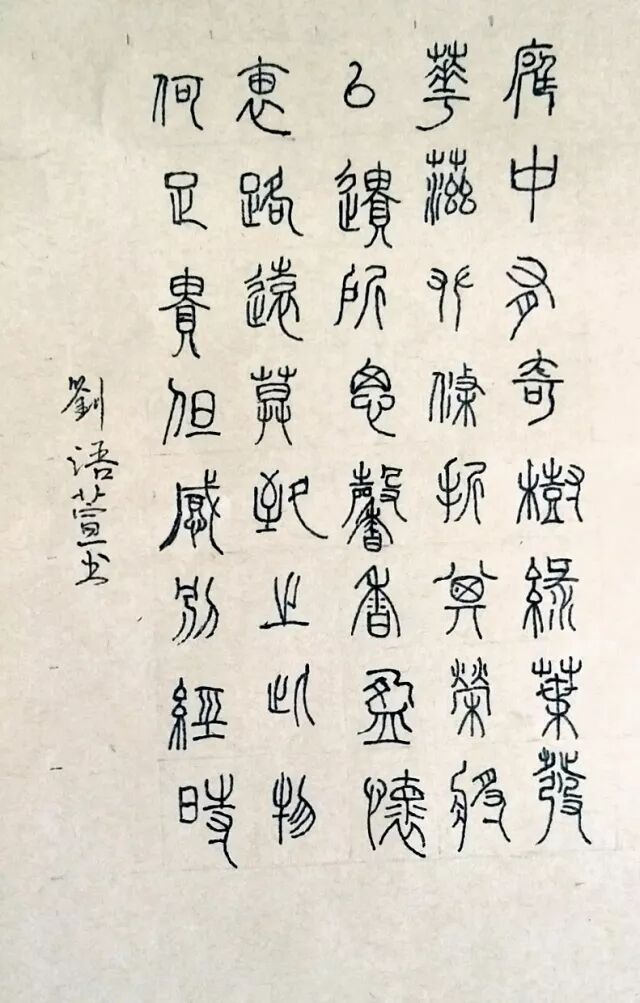 庭中有奇樹緑葉發
華滋攀條折其榮將
以遺所思馨香盈懷
袖路遠莫致之此物
何足貴但感別經時
劉语萱书